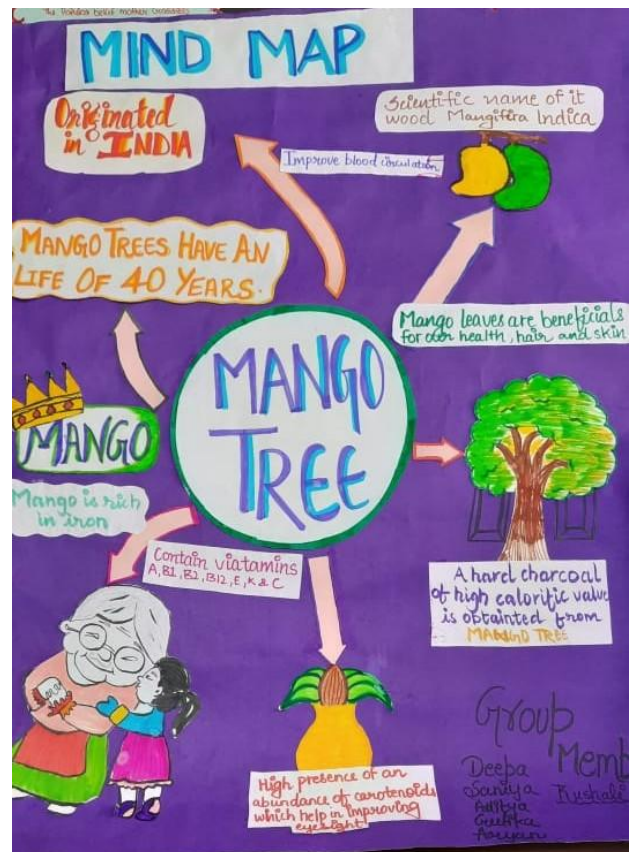 MIND MAP
Originated
in INDIA
Scientific name of it
wood Mangifera Indica
Improve blood circulation
MANGO TREES HAVE AN
LIFE OF 40 YEARS.
Mango leaves are beneficials
for our health, hair and skin
MANGO
TREE
MANGO
Mango is rich
in iron
Contain viatamins
A, B1, B2, B12, E, K & C
A hard charcoal
of high calorific value
is obtainted from
TREE
High presence of an
abundance of carotenoids
which help in improving
eyesight
Group
Memb
Deepa
Saniya
Aditya
Aaryan